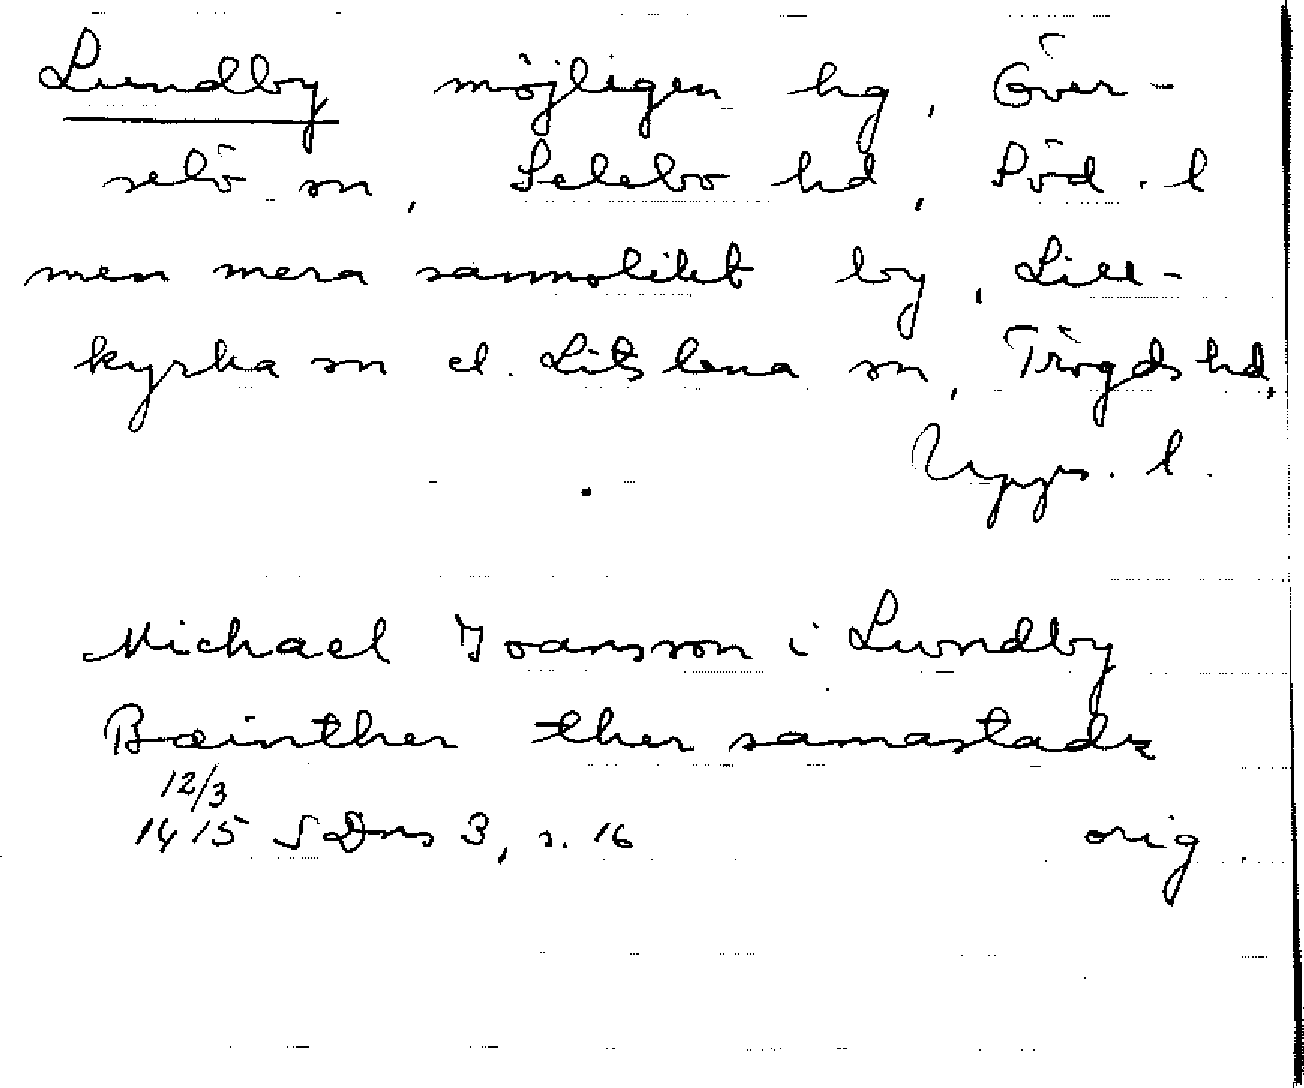 Lundby möjligen hg, Över-
selö sn, Selebo hd, Söd. l
men mera sannolikt by, Lill-
kyrka sn el. Litslena sn, Trögds hd,
Upps. l.
Michael Joansson i Lwndby
Bæinther ther samastadz
12/3
1415 SDns 3, s. 16 orig